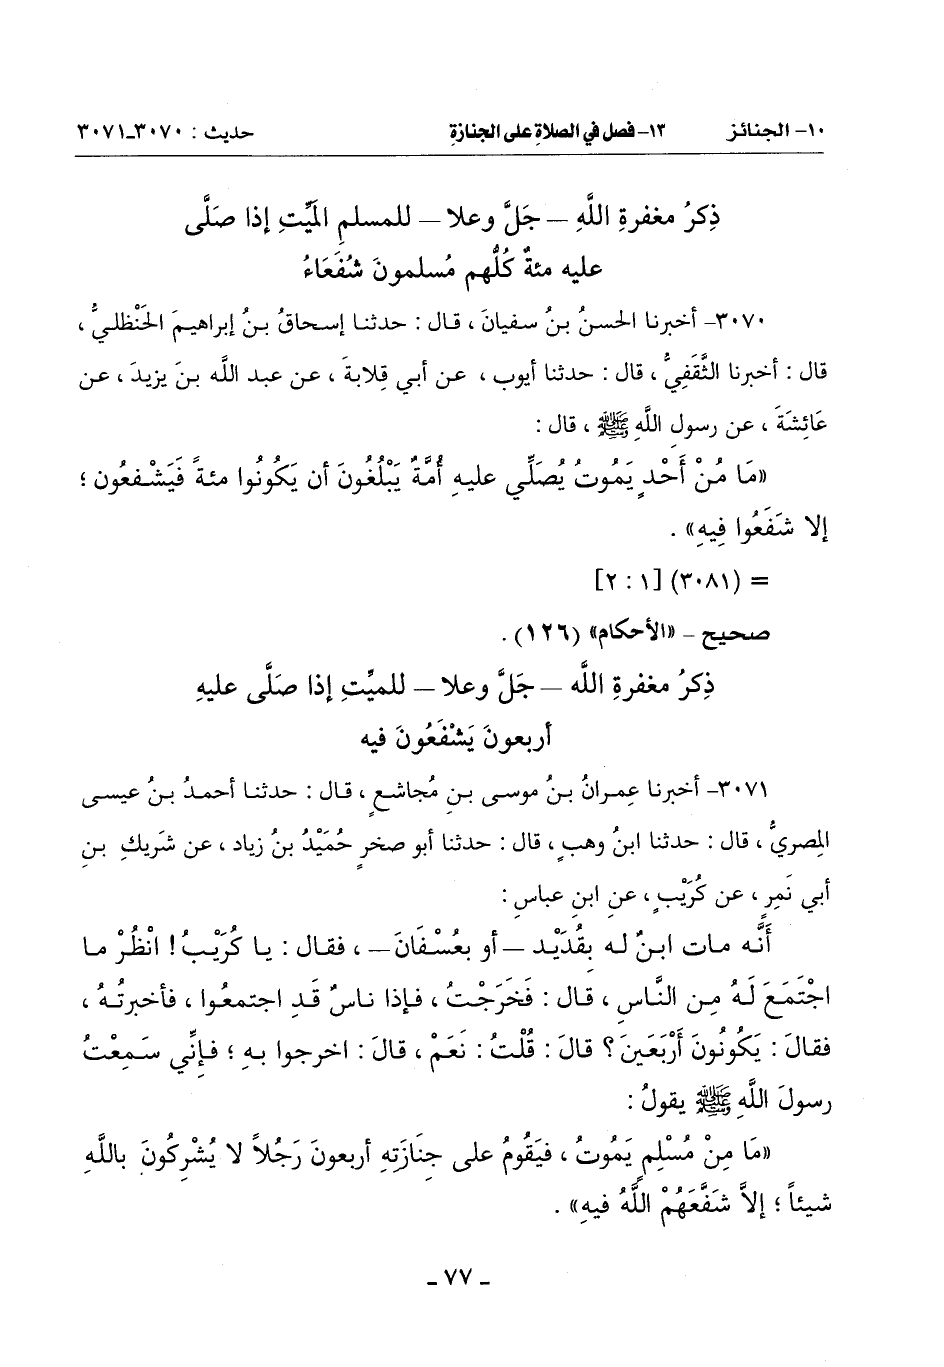 ١٠- الجنائز ١٣- فصل في الصلاةِ على الجنازةِ حديث : ٣٠٧٠-٣٠٧١
ذِكرُ مغفرةِ اللَّهِ – جَلَّ وعلا – للمسلمِ المَيِّتِ إذا صَلَّى
عليه مئةٌ كُلُّهم مُسلمونَ شُفَعَاءُ
٣٠٧٠- أخبرنا الحسنُ بنُ سفيانَ ، قال : حدثنا إسحاقُ بنُ إبراهيمَ الحَنْظليُّ ،
قال : أخبرنا الثَّقَفِيُّ ، قال : حدثنا أيوب ، عن أبي قِلابةَ ، عن عبد الله بنَ يزيدَ ، عن
عَائِشَةَ ، عن رسولِ اللَّهِ ﷺ ، قال :
«مَا مُنْ أَحْدٍ يَمُوتُ يُصَلِّي عليهِ أُمَّةٌ يَبْلُغُونَ أن يَكُونُوا مئةً فَيَشْفعُون ؛
إلا شَفَعُوا فِيهِ» .
= (٣٠٨١) [١ : ٢]
صحيح – «الأحكام» (١٢٦) .
ذِكرُ مغفرةِ اللَّه – جَلَّ وعلا – للميِّتِ إذا صَلَّى عليهِ
أربعونَ يَشْفَعُونَ فيه
٣٠٧١- أخبرنا عِمرانُ بنُ موسى بنِ مُجاشعٍ ، قال : حدثنا أحمدُ بنُ عيسى
المِصريُّ ، قال : حدثنا ابنُ وهبٍ ، قال : حدثنا أبو صخرٍ حُمَيْدُ بنُ زياد ، عن شَريكِ بنِ
أبي نَمِرٍ ، عن كُرَيْبٍ ، عنِ ابنِ عباسٍ :
أَنَّه مات ابنٌ له بقُدَيْدٍ – أو بعُسْفَانَ – ، فقال : يا كُرَيْبُ! انْظُرْ ما
اجْتَمَعَ لَهُ مِن النَّاسِ ، قال : فَخَرَجْتُ ، فإذا ناسٌ قَدِ اجتمعُوا ، فأخبرتُهُ ،
فقالَ : يَكُونُونَ أَرْبَعَينَ؟ قالَ : قُلْتُ : نَعَمْ ، قالَ : اخرجوا بهِ ؛ فإنِّي سَمِعْتُ
رسولَ اللَّهِ ﷺ يقولُ :
«مَا مِنْ مُسْلِمٍ يَمُوتُ ، فيَقُومُ على جِنَازَتِهِ أربعونَ رَجُلاً لا يُشْرِكُونَ باللَّهِ
شيئاً ؛ إلاَّ شَفَّعَهُمْ اللَّهُ فيهِ» .
- ٧٧ -